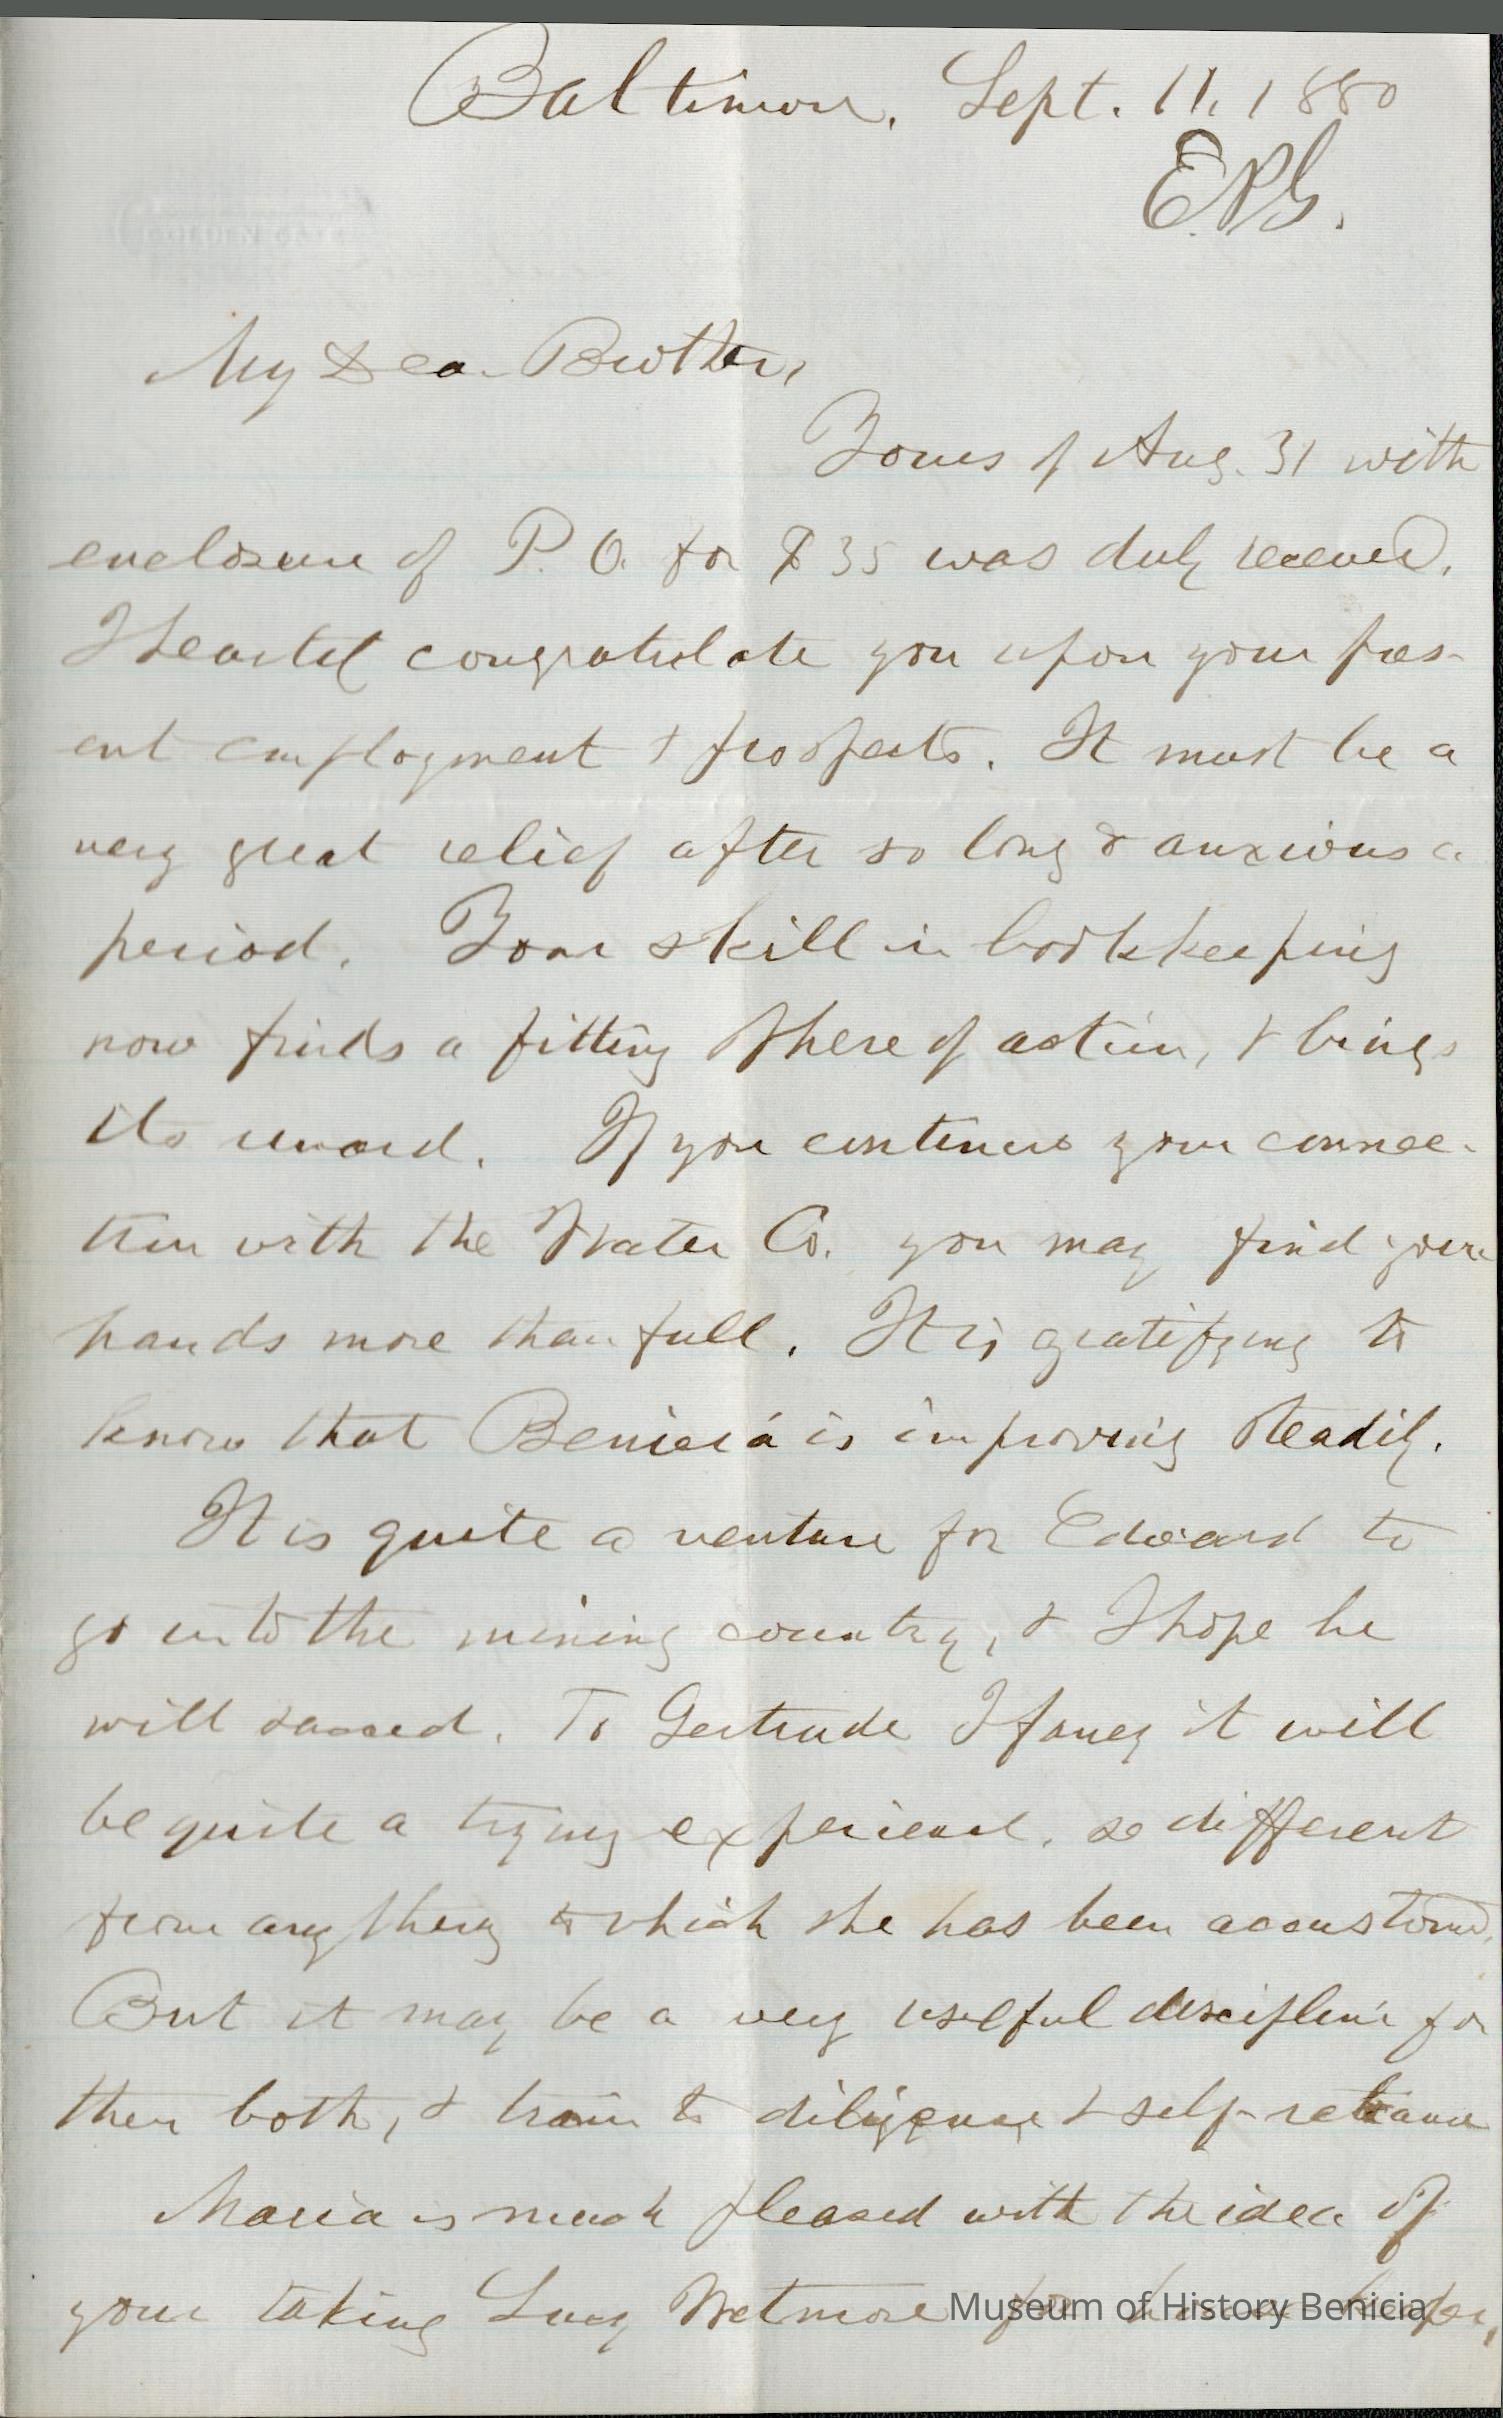 Baltimore, Sept. 11, 1880
E.P.G.
My Dear Brother,
Yours of Aug. 31 with
enclosure of P. O. for $35 was duly received.
I heartily congratulate you upon your pres-
ent employment & prospects. It must be a
very great relief after so long & anxious a
period. Your skill in bookkeeping
now finds a fitting sphere of action, & brings
its reward. If you continue your connec-
tion with the Water Co. you may find your
hands more than full. It is gratifying to
know that Benicia is improving steadily.
It is quite a venture for Edward to
go into the mining country, & I hope he
will succeed. To Gertrude I fancy it will
be quite a trying experience, so different
from anything to which she has been accustomed.
But it may be a very useful discipline for
them both, & train to diligence & self-reliance
Maria is much pleased with the idea of
your taking Lucy Wetmore for house keeper,
Museum of History Benicia